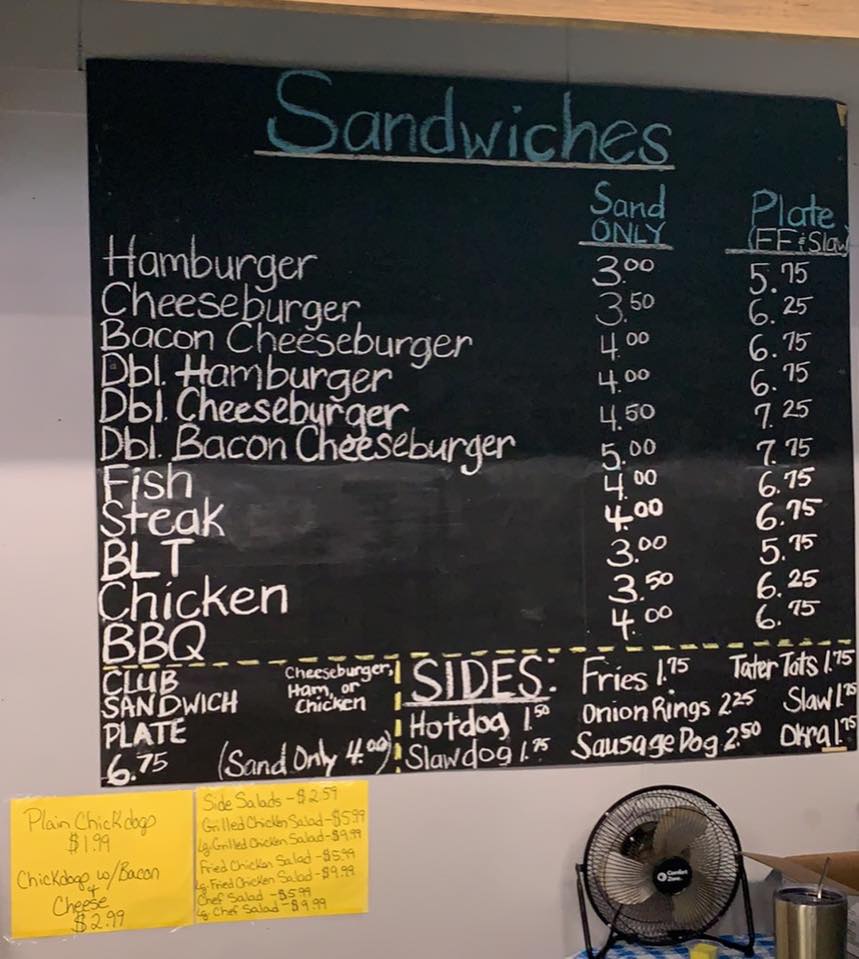 Sandwiches
Sand ONLY Plate (FF & Slaw)
Hamburger 3.00 5.75
Cheeseburger 3.50 6.25
Bacon Cheeseburger 4.00 6.75
Dbl. Hamburger 4.00 6.75
Dbl. Cheeseburger 4.50 7.25
Dbl. Bacon Cheeseburger 5.00 7.75
Fish 4.00 6.75
Steak 4.00 6.75
BLT 3.00 5.75
Chicken 3.50 6.25
BBQ 4.00 6.75
CLUB
SANDWICH
PLATE
6.75
Cheeseburger,
Ham, or
Chicken
(Sand Only 4.00)
SIDES: Fries 1.75 Tater Tots 1.75
Hotdog 1.50 Onion Rings 2.25 Slaw 1.75
Slawdog 1.75 Sausage Dog 2.50 Okra 1.75
Plain Chickdogs
$1.99
Chickdogs w/Bacon
+
Cheese
$2.99
Side Salads - $2.59
Grilled Chicken Salad - $5.99
Lg. Grilled Chicken Salad - $9.99
Fried Chicken Salad - $5.99
Lg. Fried Chicken Salad - $9.99
Chef Salad - $5.99
Lg. Chef Salad - $9.99
Comfort
Zone